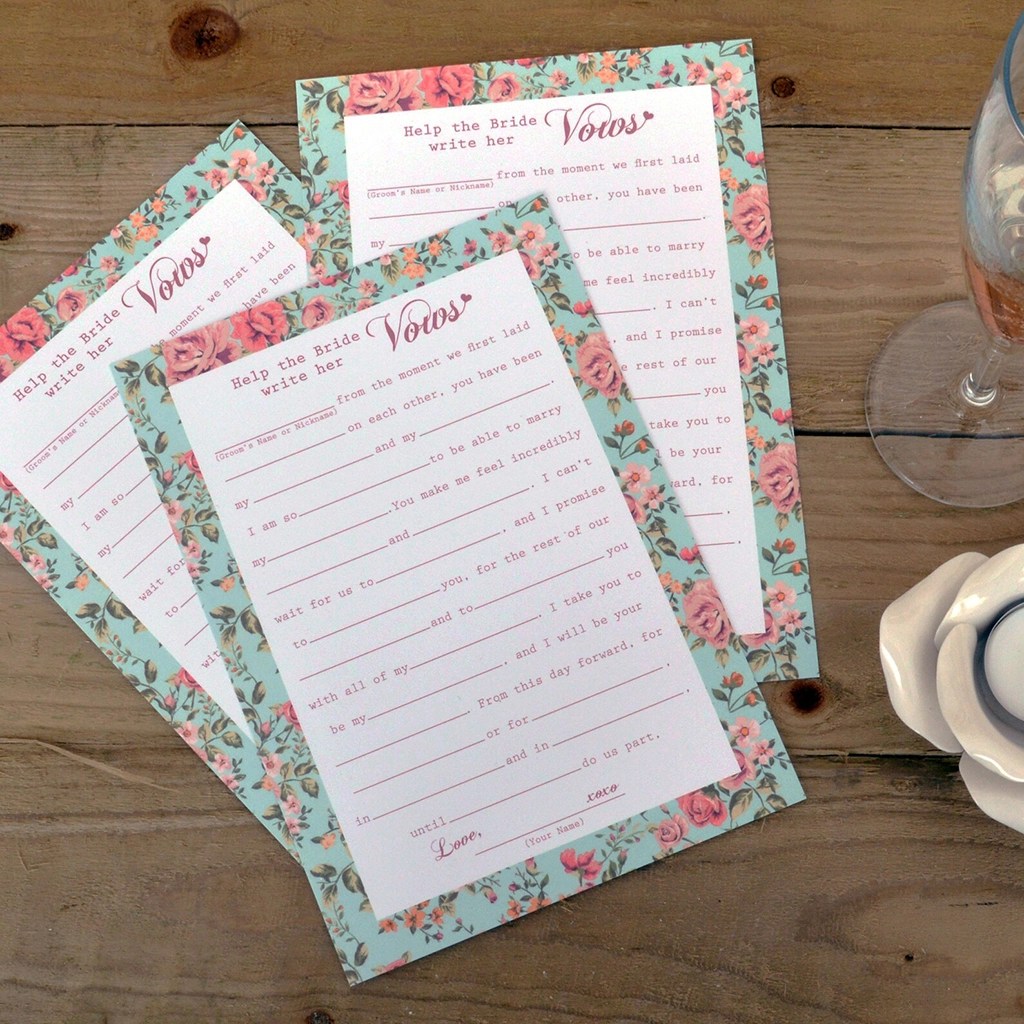 Help the Bride Vows
write her
from the moment we first laid
(Groom's Name or Nickname)
on each other, you have been
my and my .
I am so to be able to marry
my .You make me feel incredibly
and . I can't
wait for us to , and I promise
to you, for the rest of our
and to you
with all of my . I take you to
be my , and I will be your
. From this day forward, for
or for ,
in and in ,
until do us part.
Love, xoxo
(Your Name)
Help the Bride Vows
write her
from the moment we first laid
(Groom's Name or Nickname)
other, you have been
my .
be able to marry
me feel incredibly
. I can't
, and I promise
rest of our
you
take you to
be your
for
Help the Bride Vows
write her
moment we first laid
(Groom's Name or
have been
my
I am so
my
wait for
to